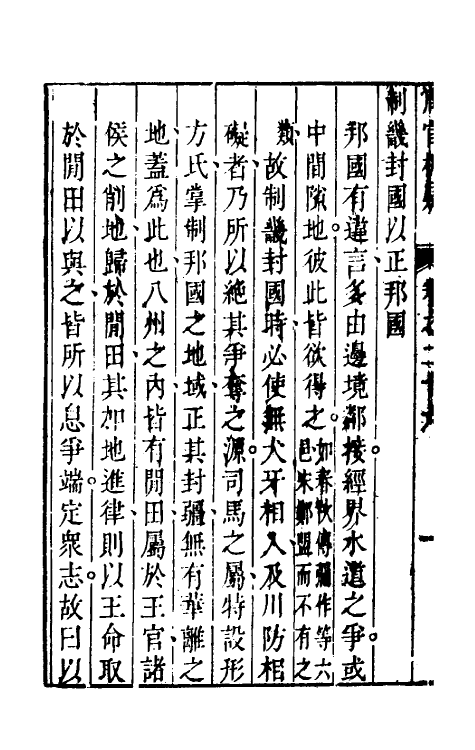 官析疑 卷之二十 一
制畿封國以正邦國
邦國有違言多由邊境鄰接經界水道之爭。或
中間隙地。彼此皆欲得之。如春秋傳彌作等六
邑宋鄭盟而不有之
類故制畿封國時、必使無犬牙相入、及川防相
礙者、乃所以絶其爭奪之源。司馬之屬、特設形
方氏、掌制邦國之地域、正其封疆、無有華離之
地、蓋爲此也、八州之内、皆有閒田、屬於王官、諸
侯之削地、歸於閒田、其加地進律、則以王命取
於閒田以與之、皆所以息爭端。定衆志。故曰以